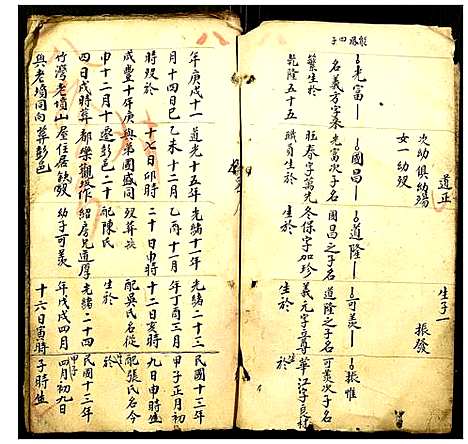 能啟四子
道正
次幼俱幼殤
女一幼殁
生子一
振發
光富
名義方字東
繁生於
乾隆五十五
年庚戌十一
月十四日巳
時殁於
咸豐十年庚
申十二月十
四日戌時葬
竹灣老墳山
與老墳同向
國昌
光富次子名
旺春字萬先
職員生於
道光十五年
乙未十二月
十七日卯時
與弟國盛同
遷彭邑二十
都樂觀坡作
屋住居缺殁
葬彭邑
道隆
國昌之子名
冬保字加珍
生於
光緒十一年
乙丙十一月
二十日申時
殁葬
配陳氏
紹房兄道厚
幼子可羨
可羨
道隆之子名
義元字立尊
生於
光緒二十三
年丁酉三月
十二日亥時
配吳氏名從
生於
光緒二十四
年戊戌四月
十六日寅時
振惟
可羨次子名
華江字良材
生於
民國十三年
甲子正月初
九日申時生
配張氏名今
於
民國十三年
甲子
四月初九日
子時生